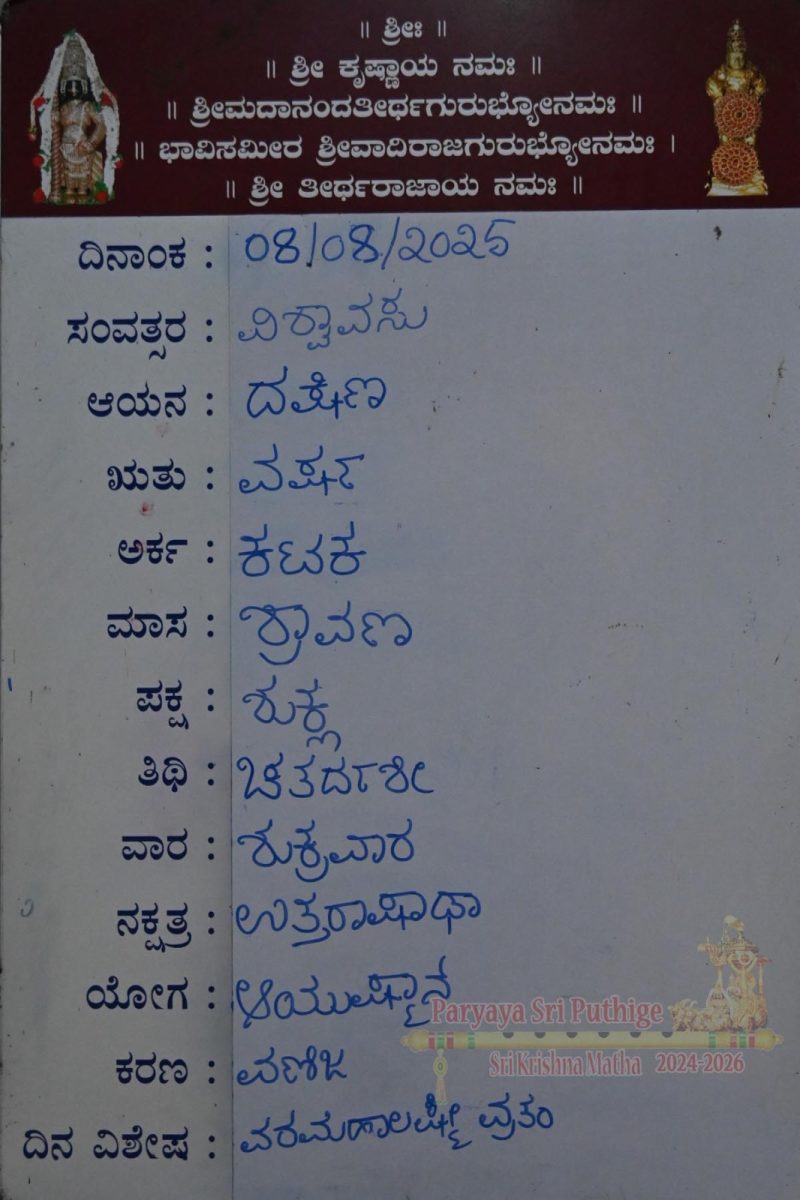 ॥ ಶ್ರೀಃ ॥
॥ ಶ್ರೀ ಕೃಷ್ಣಾಯ ನಮಃ ॥
॥ ಶ್ರೀಮದಾನಂದತೀರ್ಥಗುರುಭ್ಯೋನಮಃ ॥
॥ ಭಾವಿಸಮೀರ ಶ್ರೀವಾದಿರಾಜಗುರುಭ್ಯೋನಮಃ ।
॥ ಶ್ರೀ ತೀರ್ಥರಾಜಾಯ ನಮಃ ॥
ದಿನಾಂಕ : 08/08/2025
ಸಂವತ್ಸರ : ವಿಶ್ವಾವಸು
ಆಯನ : ದಕ್ಷಿಣ
ಋತು : ವರ್ಷ
ಅರ್ಕ : ಕಟಕ
ಮಾಸ : ಶ್ರಾವಣ
ಪಕ್ಷ : ಶುಕ್ಲ
ತಿಥಿ : ಚತರ್ದಶೀ
ವಾರ : ಶುಕ್ರವಾರ
ನಕ್ಷತ್ರ : ಉತ್ತರಾಷಾಢಾ
ಯೋಗ : ಆಯುಷ್ಮಾನ್
ಕರಣ : ವಣಿಜ
ದಿನ ವಿಶೇಷ : ವರಮಹಾಲಕ್ಷ್ಮೀ ವ್ರತಂ
Paryaya Sri Puthige
Sri Krishna Matha 2024-2026